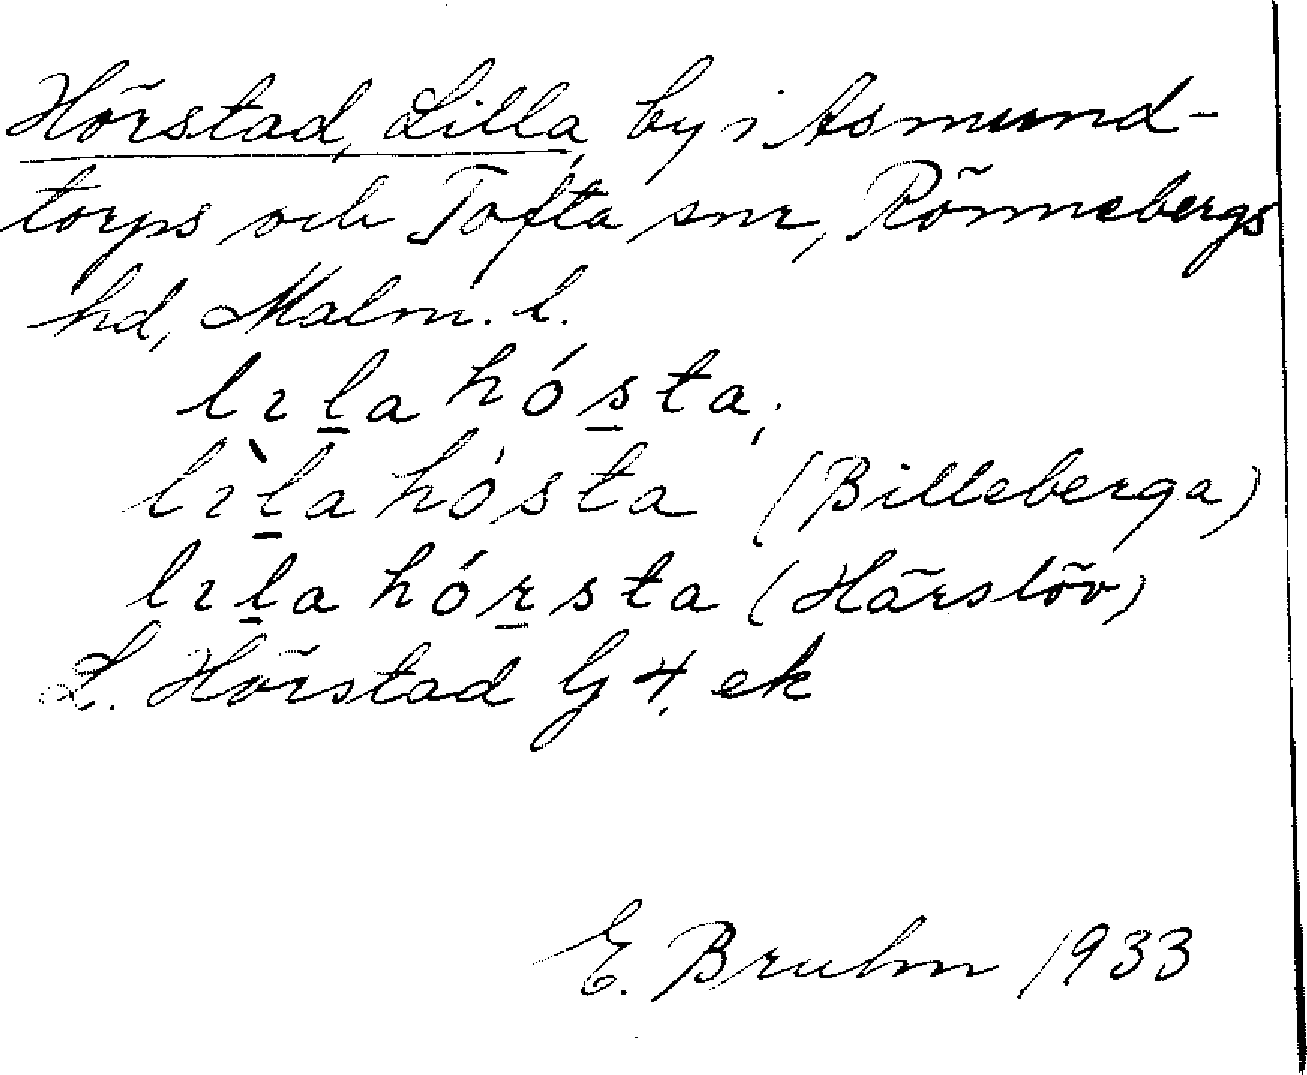 Hörstad, Lilla, by i Asmund-
torps och Tofta snr, Rönnebergs
hd, Malm. l.
lıl̲a hós̲ta;
lı̀l̲a hósta (Billeberga)
lıl̲a hór̲sta (Härslöv)
L. Hörstad G 4. ek
E. Bruhn 1933